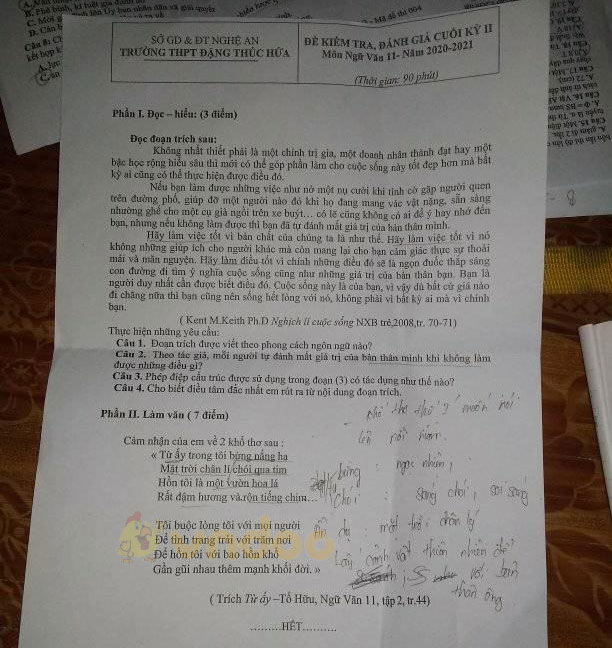 - Mã đề thi 004
SỞ GD & ĐT NGHỆ AN
TRƯỜNG THPT ĐẶNG THÚC HỨA
ĐỀ KIỂM TRA, ĐÁNH GIÁ CUỐI KỲ II
Môn Ngữ Văn 11- Năm 2020-2021
(Thời gian: 90 phút)
Phần I. Đọc – hiểu: (3 điểm)
Đọc đoạn trích sau:
Không nhất thiết phải là một chính trị gia, một doanh nhân thành đạt hay một
bậc học rộng hiểu sâu thì mới có thể góp phần làm cho cuộc sống này tốt đẹp hơn mà bất
kỳ ai cũng có thể thực hiện được điều đó.
Nếu bạn làm được những việc như nở một nụ cười khi tình cờ gặp người quen
trên đường phố, giúp đỡ một người nào đó khi họ đang mang vác vật nặng, sẵn sàng
nhường ghế cho một cụ già ngồi trên xe buýt… có lẽ cũng không có ai để ý hay nhớ đến
bạn, nhưng nếu không làm được thì bạn đã tự đánh mất giá trị của bản thân mình.
Hãy làm việc tốt vì bản chất của chúng ta là như thế. Hãy làm việc tốt vì nó
không những giúp ích cho người khác mà còn mang lại cho bạn cảm giác thực sự thoải
mái và mãn nguyện. Hãy làm điều tốt vì chính những điều đó sẽ là ngọn đuốc thắp sáng
con đường đi tìm ý nghĩa cuộc sống cũng như những giá trị của bản thân bạn. Bạn là
người duy nhất cần được biết điều đó. Cuộc sống này là của bạn, vì vậy dù bất cứ giá nào
đi chăng nữa thì bạn cũng nên sống hết lòng với nó, không phải vì bất kỳ ai mà vì chính
bạn.
( Kent M.Keith Ph.D Nghịch lí cuộc sống NXB trẻ,2008,tr. 70-71)
Thực hiện những yêu cầu:
Câu 1. Đoạn trích được viết theo phong cách ngôn ngữ nào?
Câu 2. Theo tác giả, mỗi người tự đánh mất giá trị của bản thân mình khi không làm
được những điều gì?
Câu 3. Phép điệp cấu trúc được sử dụng trong đoạn (3) có tác dụng như thế nào?
Câu 4. Cho biết điều tâm đắc nhất em rút ra từ nội dung đoạn trích.
Phần II. Làm văn ( 7 điểm)
Cảm nhận của em về 2 khổ thơ sau :
« Từ ấy trong tôi bừng nắng hạ
Mặt trời chân lí chói qua tim
Hồn tôi là một vườn hoa lá
Rất đậm hương và rộn tiếng chim…
Tôi buộc lòng tôi với mọi người
Để tình trang trải với trăm nơi
Để hồn tôi với bao hồn khổ
Gần gũi nhau thêm mạnh khối đời. »
( Trích Từ ấy –Tố Hữu, Ngữ Văn 11, tập 2, tr.44)
………HẾT………
- khổ thơ thứ I muốn nói
lên nỗi
bừng : ngạc nhiên,
chói : sáng chói, soi sáng
Ẩn dụ : mặt trời chân lý
cảnh vật thiên nhiên để
với bản
thân ông.